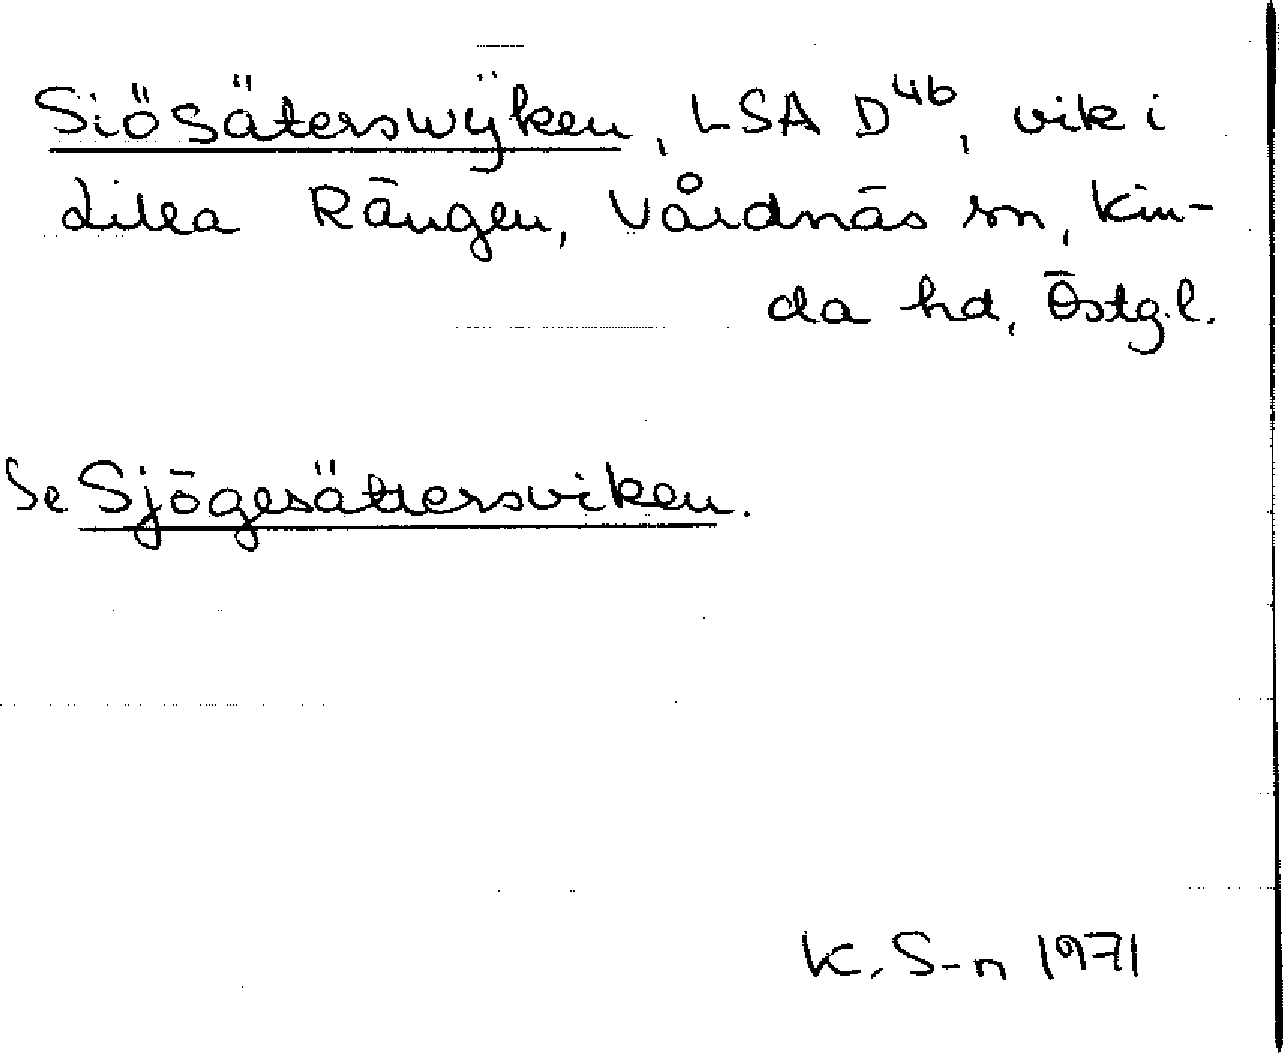 Siösäterswÿken, LSA D4b, vik i
Lilla Rängen, Vårdnäs sn, Kin-
da hd, Östg.l.
Se Sjögesättersviken.
K. S-n 1971